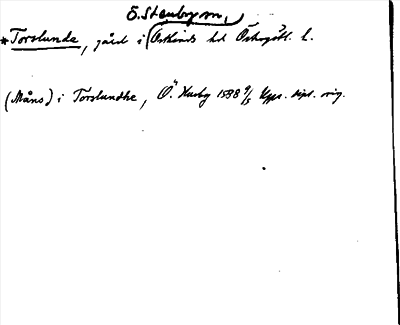 Ö. Stenby sn,
*Torslunda, gård i Östkinds hd Östergötl. l.
(Måns) i Torslundhe, Ö. Husby 1538 9/5 Upps. dipl. orig.